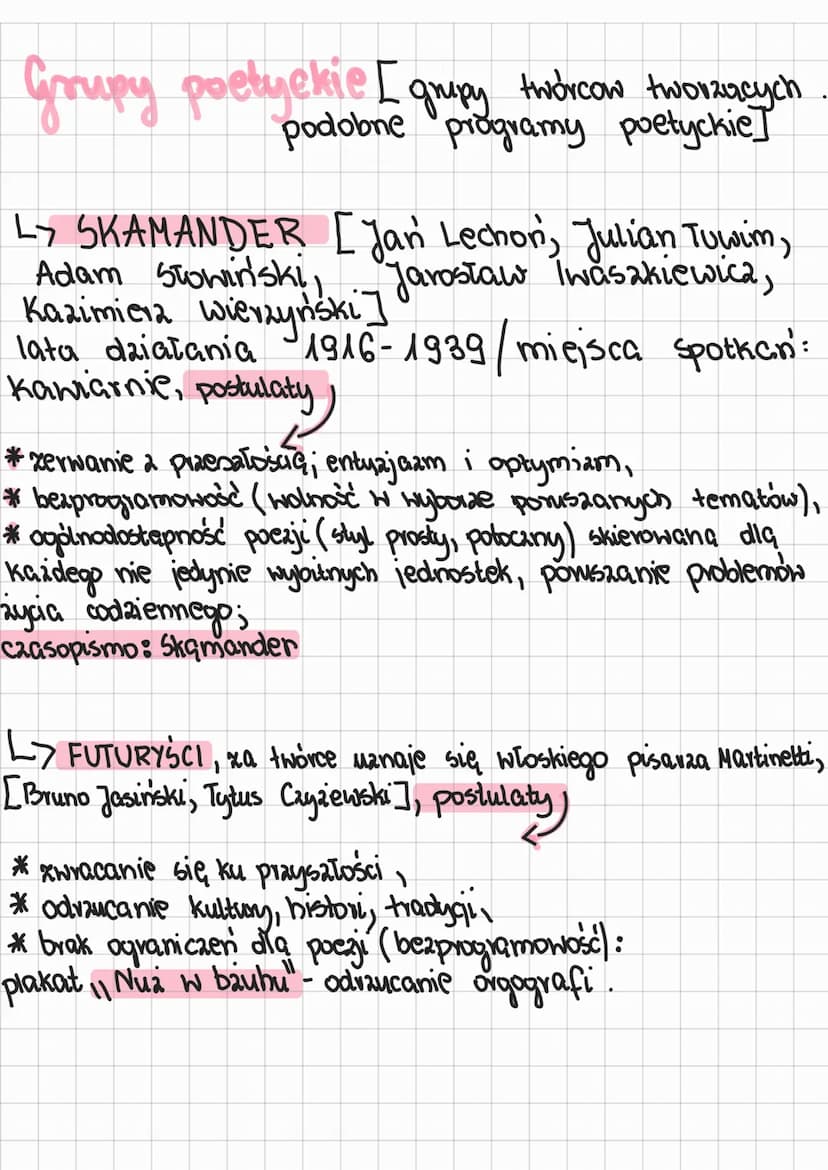 Grupy poetyckie [ grupy twórcow tworzących
podobne programy poetyckie]
↳ SKAMANDER [Jań Lechoń, Julian Tuwim,
Adam Słowiński, Jarosław Iwaszkiewicz,
Kazimierz Wierzyński]
lata działania 1916-1939 / miejsca spotkań:
kawiarnie, postulaty
* zerwanie z przeszłością; entuzjazm i optymizm,
* bezprogramowość (wolność w wyborze poruszanych tematów),
* ogólnodostępność poezji (styl prosty, potoczny) skierowana dla
każdego nie jedynie wybitnych jednostek, poruszanie problemów
życia codziennego;
czasopismo: Skamander
↳ FUTURYŚCI, za twórce uznaje się włoskiego pisarza Martinetti,
[Bruno Jasiński, Tytus Czyżewski], postulaty
* zwracanie się ku przyszłości,
* odrzucanie kultury, histori, tradycji,
* brak ograniczeń dla poezji (bezprogramowość):
plakat „Nuż w bżuhu" - odrzucanie orgografi.